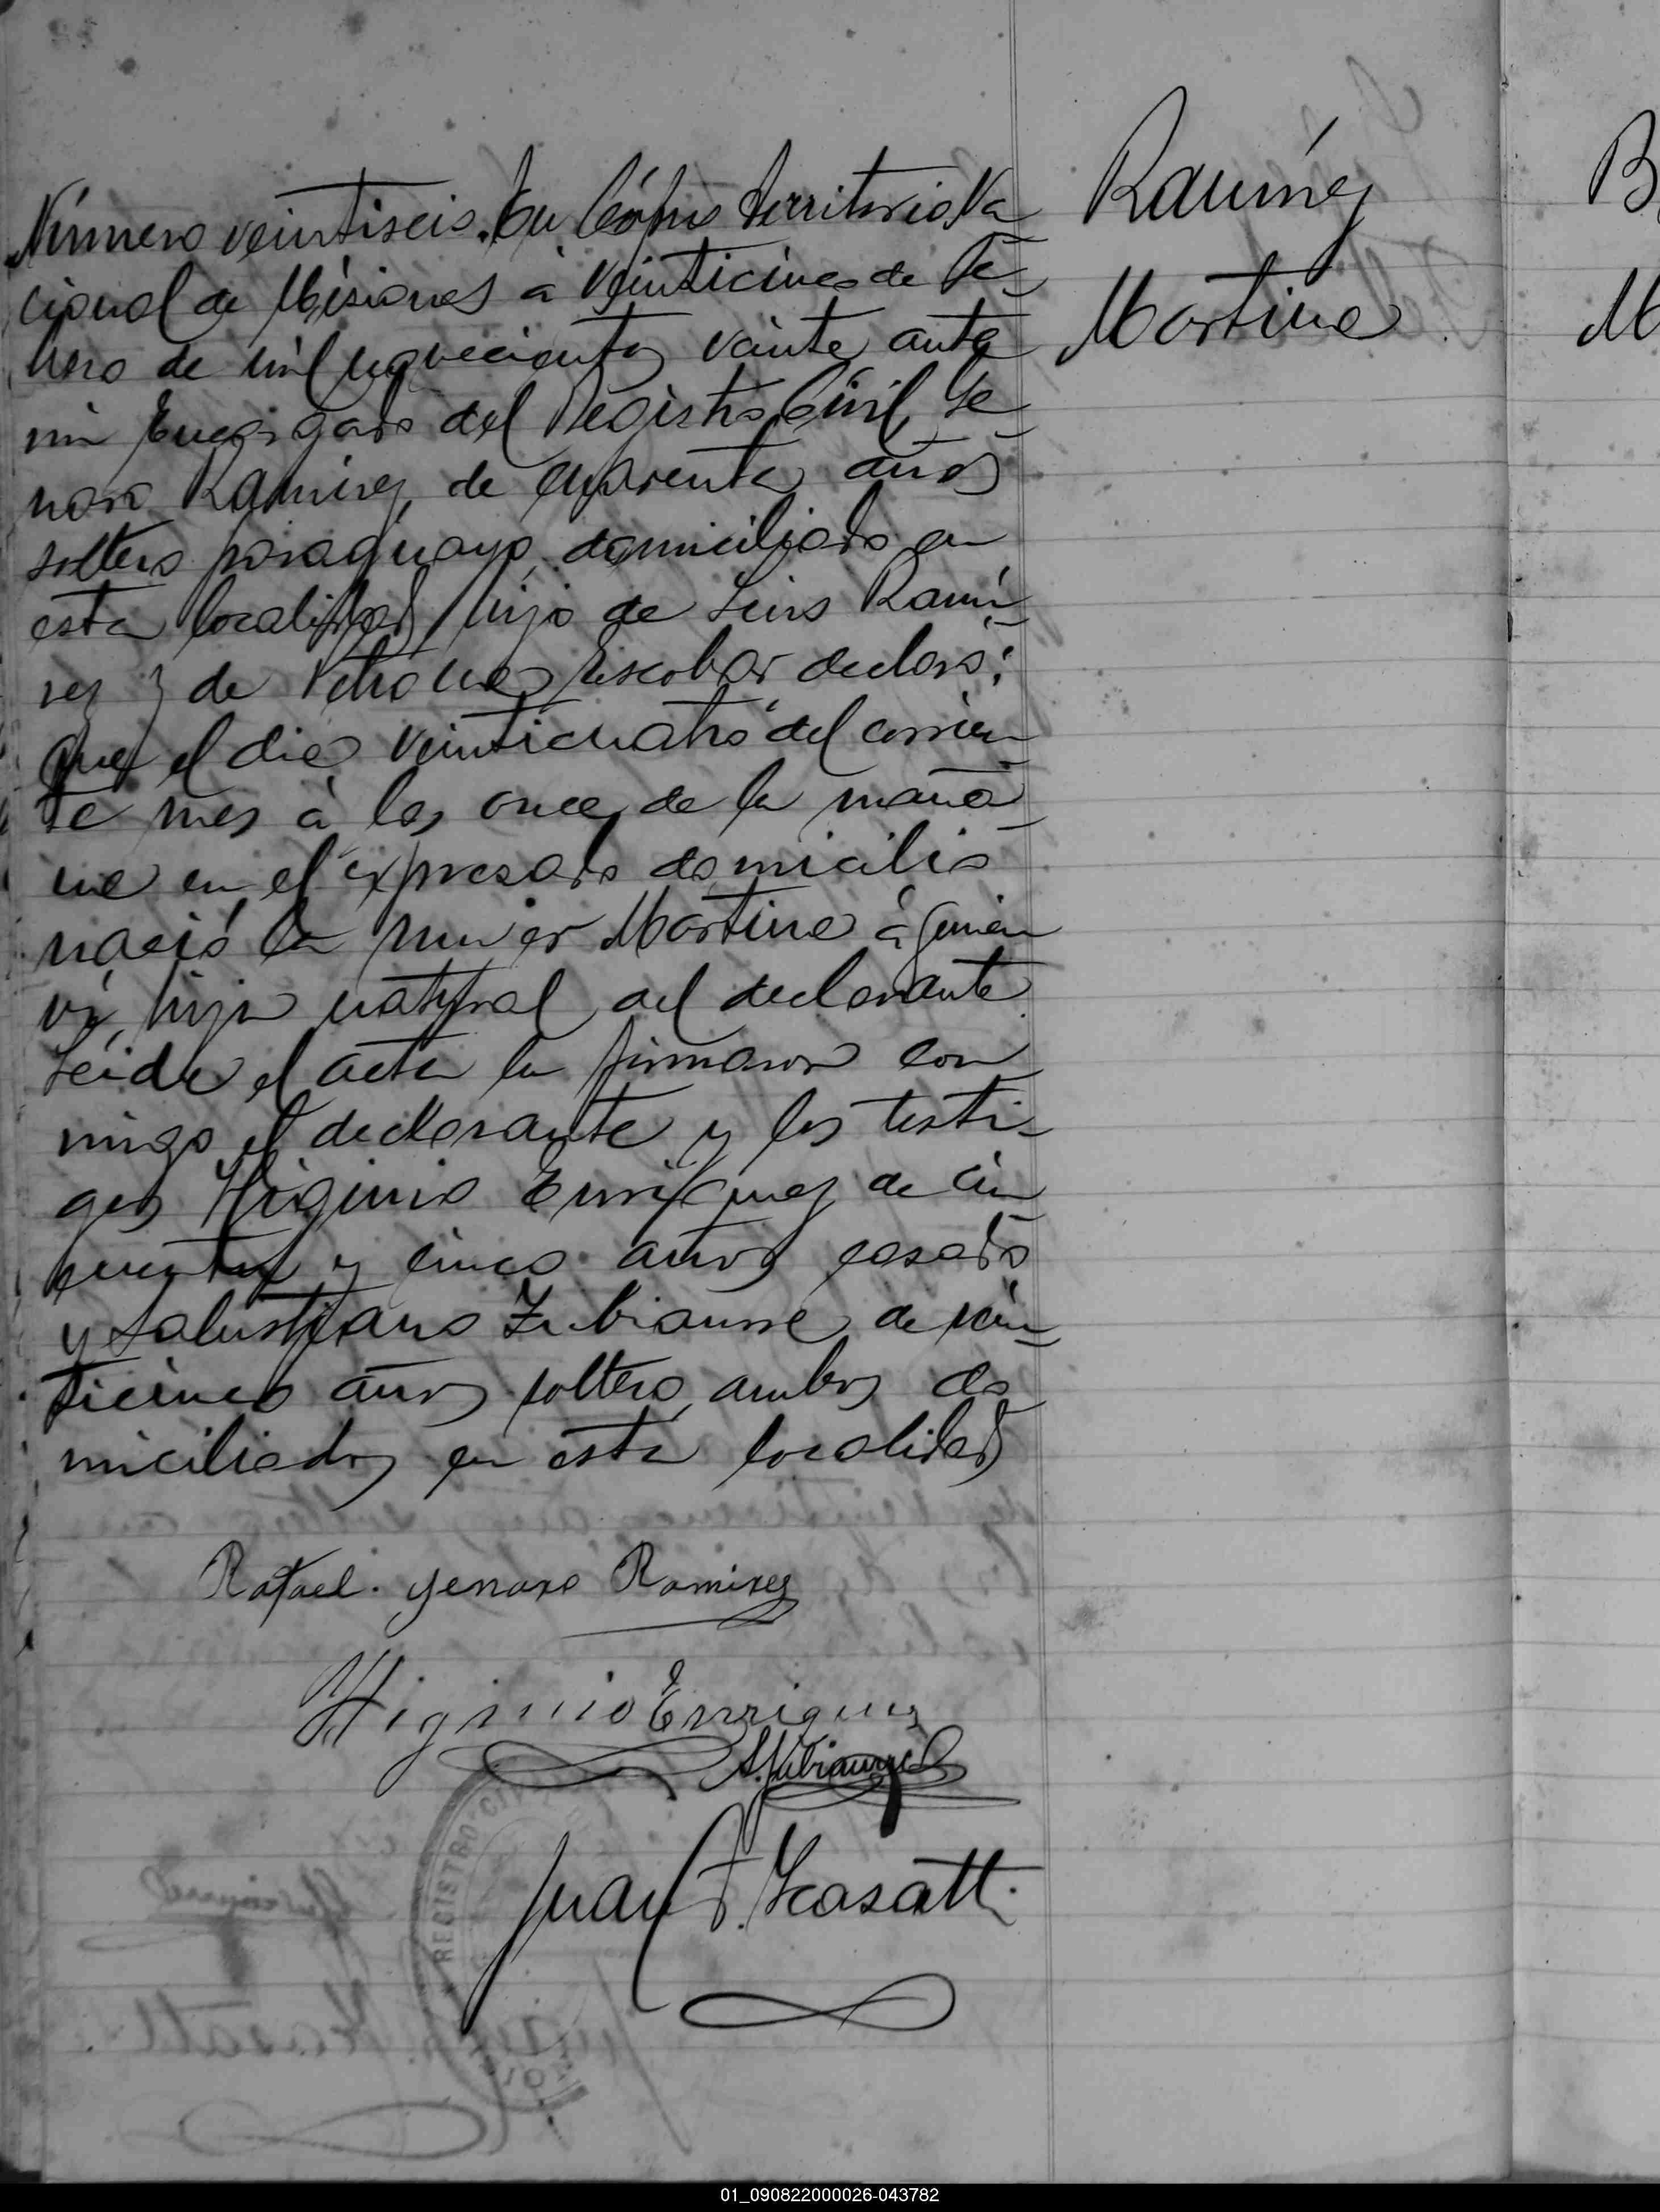 Número veintiseis. En Córpus Territorio Na
cional de Misiones à veinticinco de Fe-
brero de mil novecientos veinte ante
mi Encargado del Registro Civil, Ge
naro Ramirez, de cuarenta años
soltero paraguayo, domiciliado en
esta localidad, hijo de Luis Ramí
rez y de Petrona Escobar declaró:
Que el dia veinticuatro del corrien
te mes à las once de la maña
na en el expresado domicilio
nació la mujer Martina à quien
ví, hija natural del declarante
Leida el acta la firmaron con
migo el declarante y los testi-
gos Higinio Enriquez de cin
cuenta y cinco años casado
y Salustiano Zubiaurre de vein
ticinco años soltero, ambos do
miciliados en esta localidad
Ramírez
Martina
B
M
Rafael. Genaro Ramirez
Higinio Enrriquez
S. Zubiaurre
REGISTRO CIVIL
Juan F. Kasatti
01_090822000026-043782